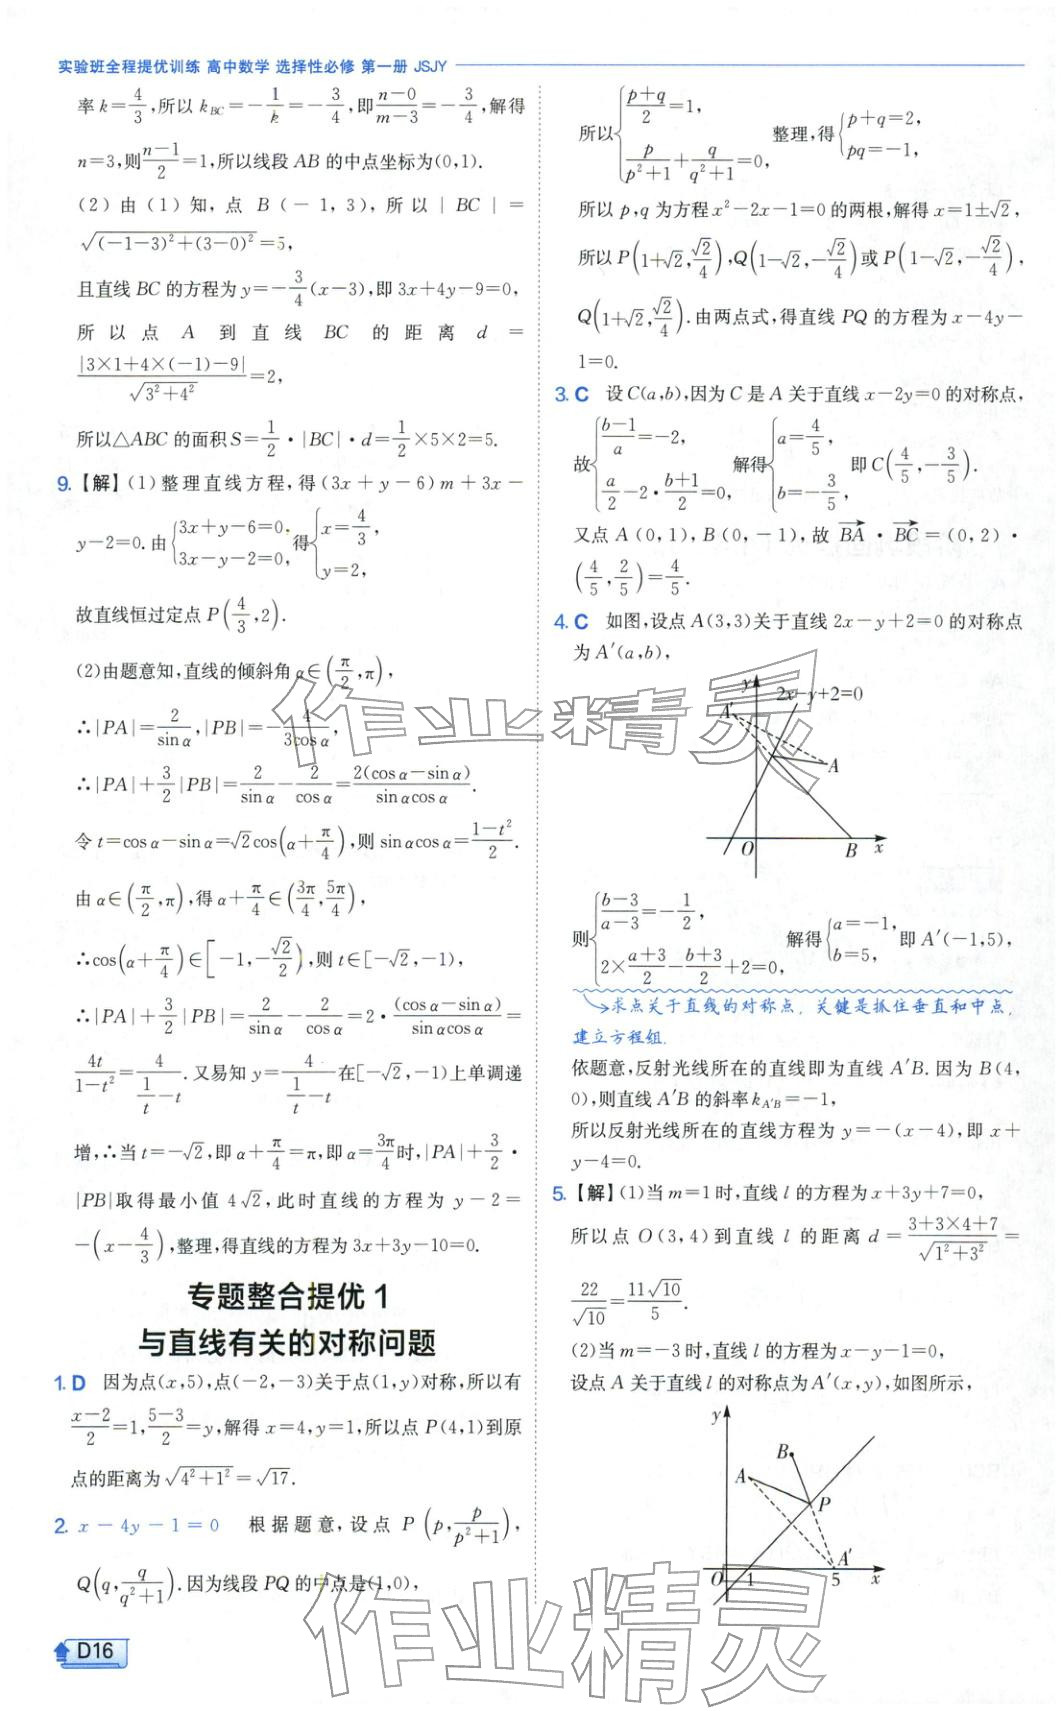 实验班全程提优训练 高中数学 选择性必修 第一册 JSJY
率k=4/3,所以k_{BC}=-1/k=-3/4,即(n-0)/(m-3)=-3/4,解得
n=3,则(n-1)/2=1,所以线段AB的中点坐标为(0,1).
(2)由(1)知,点B(-1,3),所以|BC|=
√((-1-3)²+(3-0)²)=5,
且直线BC的方程为y=-3/4(x-3),即3x+4y-9=0,
所以点A到直线BC的距离d=
|3×1+4×(-1)-9|/√(3²+4²)=2,
所以△ABC的面积S=1/2·|BC|·d=1/2×5×2=5.
9.【解】(1)整理直线方程,得(3x+y-6)m+3x-
y-2=0.由{3x+y-6=0, 3x-y-2=0,得{x=4/3, y=2,
故直线恒过定点P(4/3,2).
(2)由题意知,直线的倾斜角α∈(π/2,π),
∴|PA|=2/sinα,|PB|=-4/(3cosα),
∴|PA|+3/2|PB|=2/sinα-2/cosα=2(cosα-sinα)/(sinαcosα).
令t=cosα-sinα=√2cos(α+π/4),则sinαcosα=(1-t²)/2.
由α∈(π/2,π),得α+π/4∈(3π/4,5π/4),
∴cos(α+π/4)∈[-1,-√2/2),则t∈[-√2,-1),
∴|PA|+3/2|PB|=2/sinα-2/cosα=2·(cosα-sinα)/(sinαcosα)=
4t/(1-t²)=4/(1/t-t).又易知y=4/(1/t-t)在[-√2,-1)上单调递
增,∴当t=-√2,即α+π/4=π,即α=3π/4时,|PA|+3/2·
|PB|取得最小值4√2,此时直线的方程为y-2=
-(x-4/3),整理,得直线的方程为3x+3y-10=0.
专题整合提优1
与直线有关的对称问题
1. D 因为点(x,5),点(-2,-3)关于点(1,y)对称,所以有
(x-2)/2=1,(5-3)/2=y,解得x=4,y=1,所以点P(4,1)到原
点的距离为√(4²+1²)=√17.
2. x-4y-1=0 根据题意,设点P(p,p/(p²+1)),
Q(q,q/(q²+1)).因为线段PQ的中点是(1,0),
D16
所以{(p+q)/2=1, p/(p²+1)+q/(q²+1)=0,整理,得{p+q=2, pq=-1,
所以p,q为方程x²-2x-1=0的两根,解得x=1±√2,
所以P(1+√2,√2/4),Q(1-√2,-√2/4)或P(1-√2,-√2/4),
Q(1+√2,√2/4).由两点式,得直线PQ的方程为x-4y-
1=0.
3. C 设C(a,b),因为C是A关于直线x-2y=0的对称点,
故{(b-1)/a=-2, a/2-2·(b+1)/2=0,解得{a=4/5, b=-3/5,即C(4/5,-3/5),
又点A(0,1),B(0,-1),故BA→·BC→=(0,2)·
(4/5,2/5)=4/5.
4. C 如图,设点A(3,3)关于直线2x-y+2=0的对称点
为A′(a,b),
y 2x-y+2=0
A′
A
O B x
则{(b-3)/(a-3)=-1/2, 2×(a+3)/2-(b+3)/2+2=0,解得{a=-1, b=5,即A′(-1,5),
求点关于直线的对称点,关键是抓住垂直和中点,
建立方程组.
依题意,反射光线所在的直线即为直线A′B.因为B(4,
0),则直线A′B的斜率k_{A′B}=-1,
所以反射光线所在的直线方程为y=-(x-4),即x+
y-4=0.
5.【解】(1)当m=1时,直线l的方程为x+3y+7=0,
所以点O(3,4)到直线l的距离d=(3+3×4+7)/√(1²+3²)=
22/√10=11√10/5.
(2)当m=-3时,直线l的方程为x-y-1=0,
设点A关于直线l的对称点为A′(x,y),如图所示,
y
B
A
P
A′
O 1 5 x
作业精灵
作业精灵